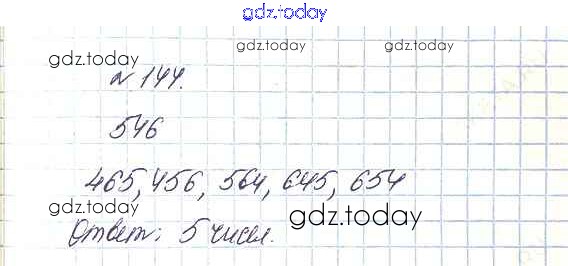 gdz.today
gdz.today gdz.today gdz.today
№ 144.
546
465, 456, 564, 645, 654
gdz.today gdz.today
Ответ: 5 чисел.